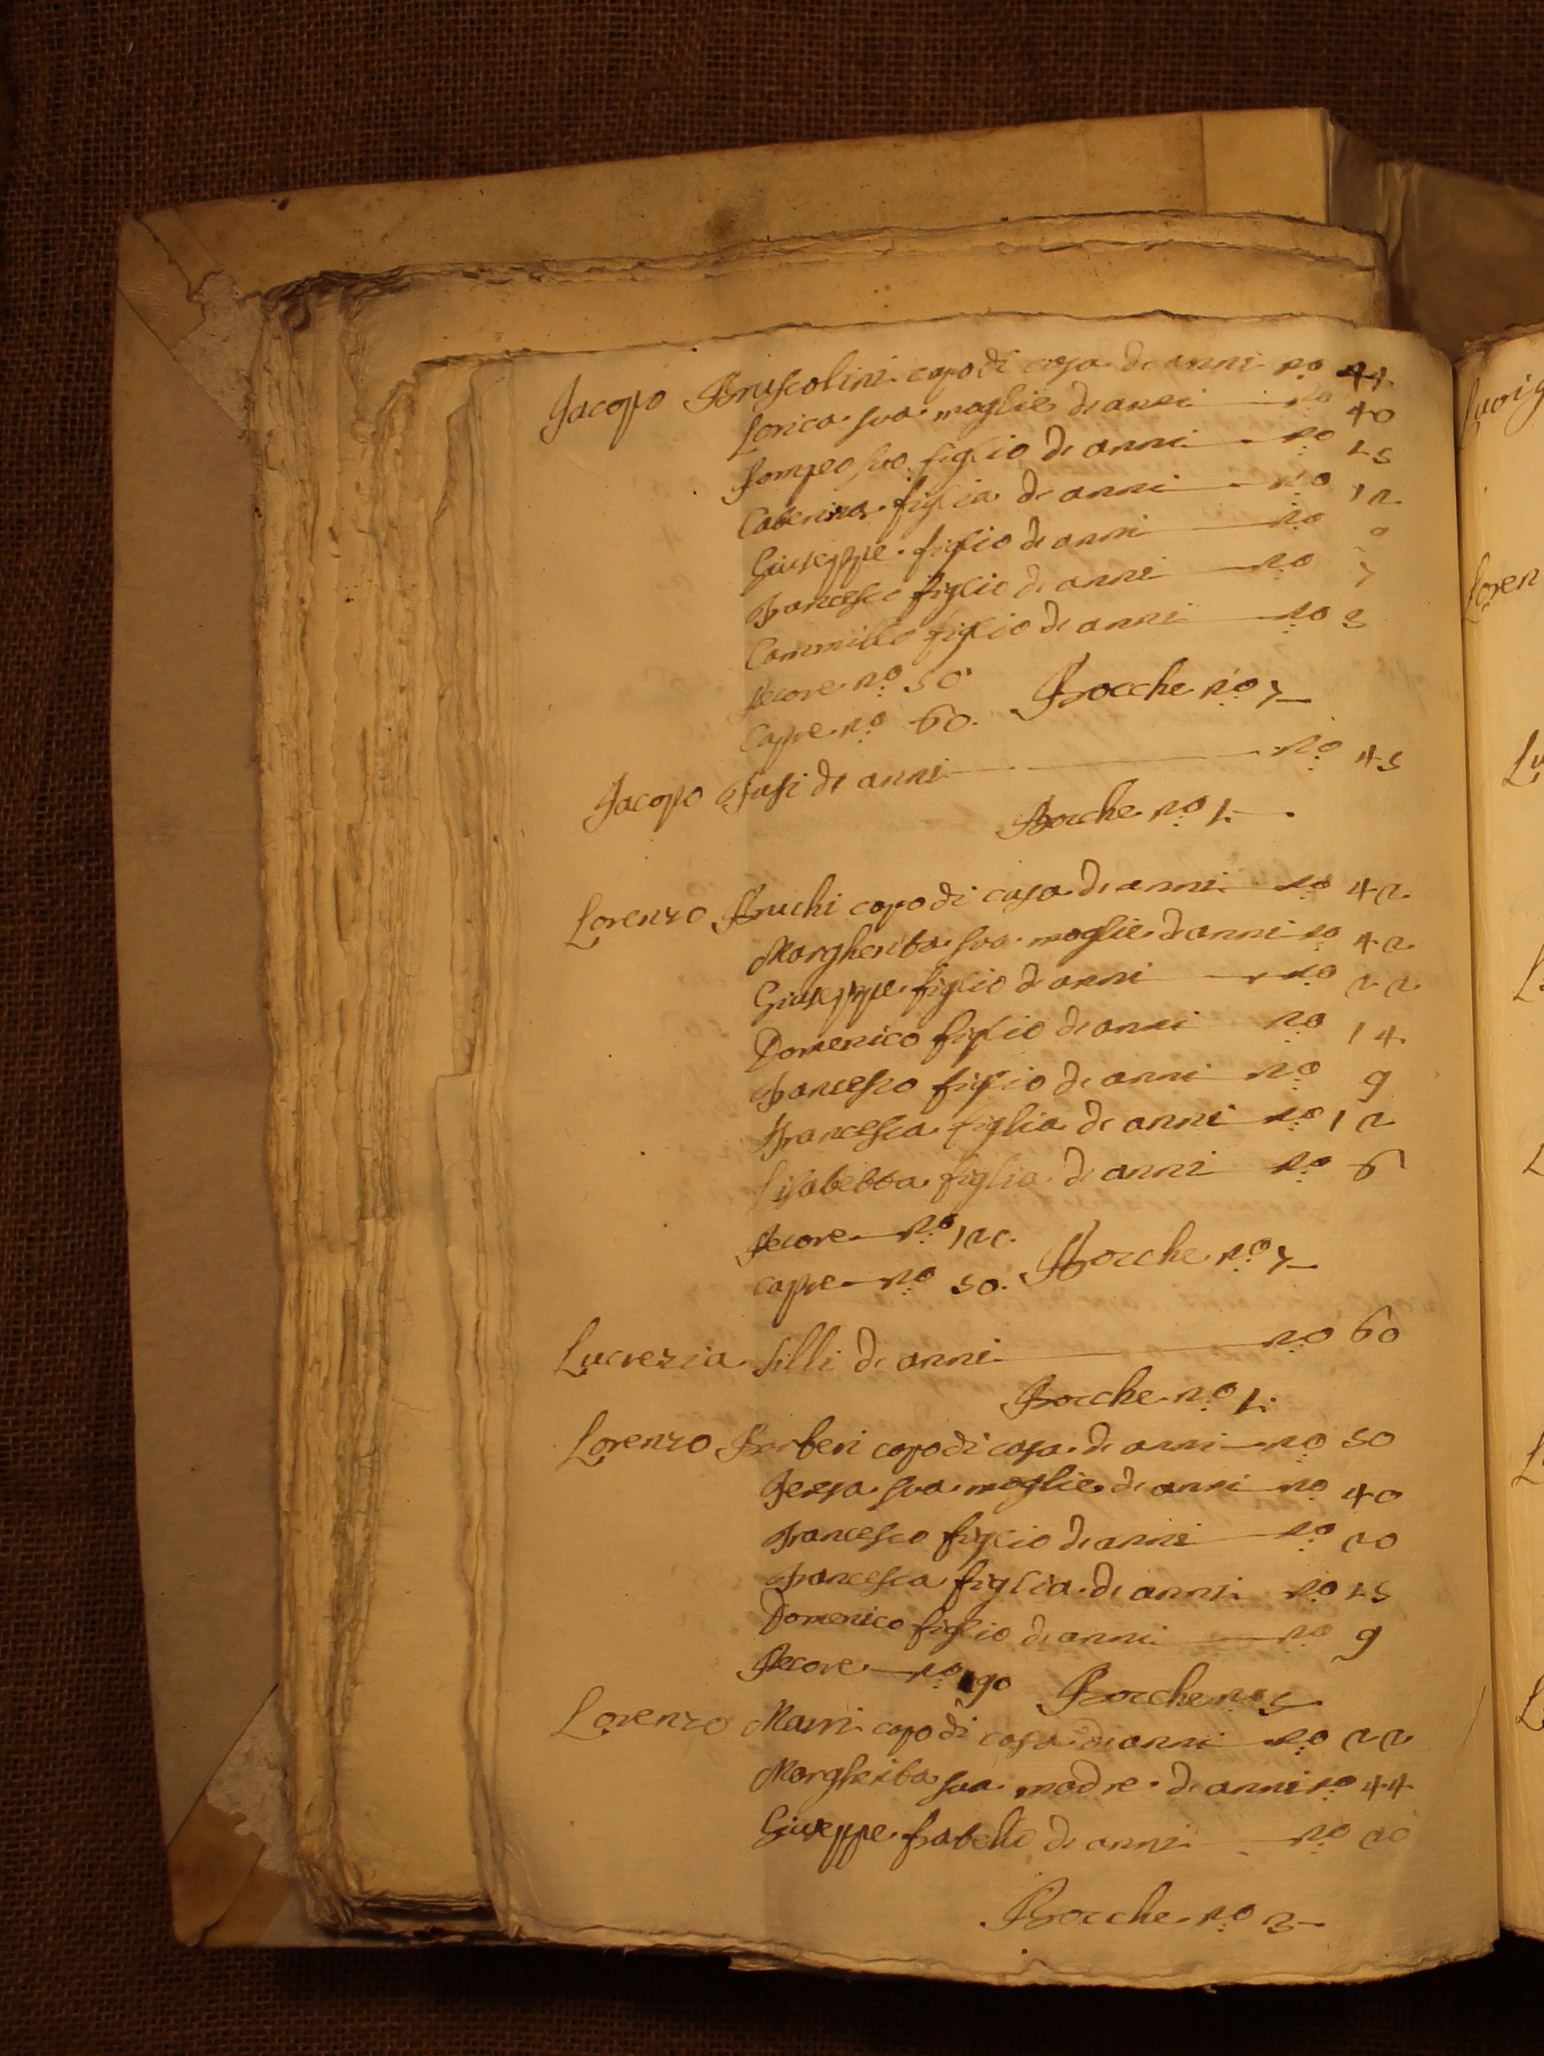 Jacopo Bruscolini capo di casa di anni no 44
Lorica sua moglie di anni no 40
Pompeo suo figlio di anni no 15
Catterina figlia di anni no 12
Giuseppe figlio di anni no 9
Francesco figlio di anni no 7
Cammillo figlio di anni no 3
Pecore no 50
Capre no 60. Bocche no 7
Jacopo Fusi di anni no 45
Bocche no 1.
Lorenzo Bruchi capo di casa di anni no 42
Margherita sua moglie d anni no 42
Giuseppe figlio d anni no 22
Domenico figlio di anni no 14.
Francesco figlio di anni no 9
Francesca figlia di anni no 12
Lisabetta figlia di anni no 6
Pecore no 120.
Capre no 50. Bocche no 7
Lucrezia Lilli di anni no 60
Bocche no 1.
Lorenzo Barberi capo di casa di anni no 50
sua moglie di anni no 40
Francesco figlio di anni no 20
Francesca figlia di anni no 15
Domenico figlio di anni no 9
Pecore no 90 Bocche no 5
Lorenzo Marri capo di casa di anni no 22
Margherita sua madre di anni no 44
Giuseppe fratello di anni no 20
Bocche no 3
Loren